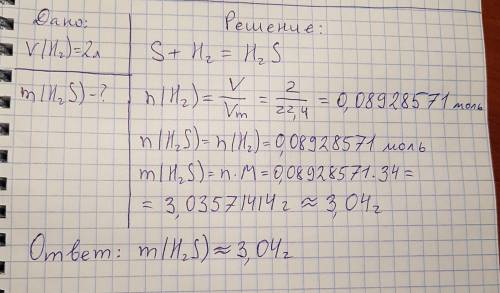 Дано:
V(H₂)=2л
m(H₂S)-?
Решение:
S + H₂ = H₂S
n(H₂) = V/Vm = 2/22,4 = 0,08928571 моль
n(H₂S) = n(H₂) = 0,08928571 моль
m(H₂S) = n·M = 0,08928571·34 =
= 3,03571414г ≈ 3,04г
Ответ: m(H₂S) ≈ 3,04г